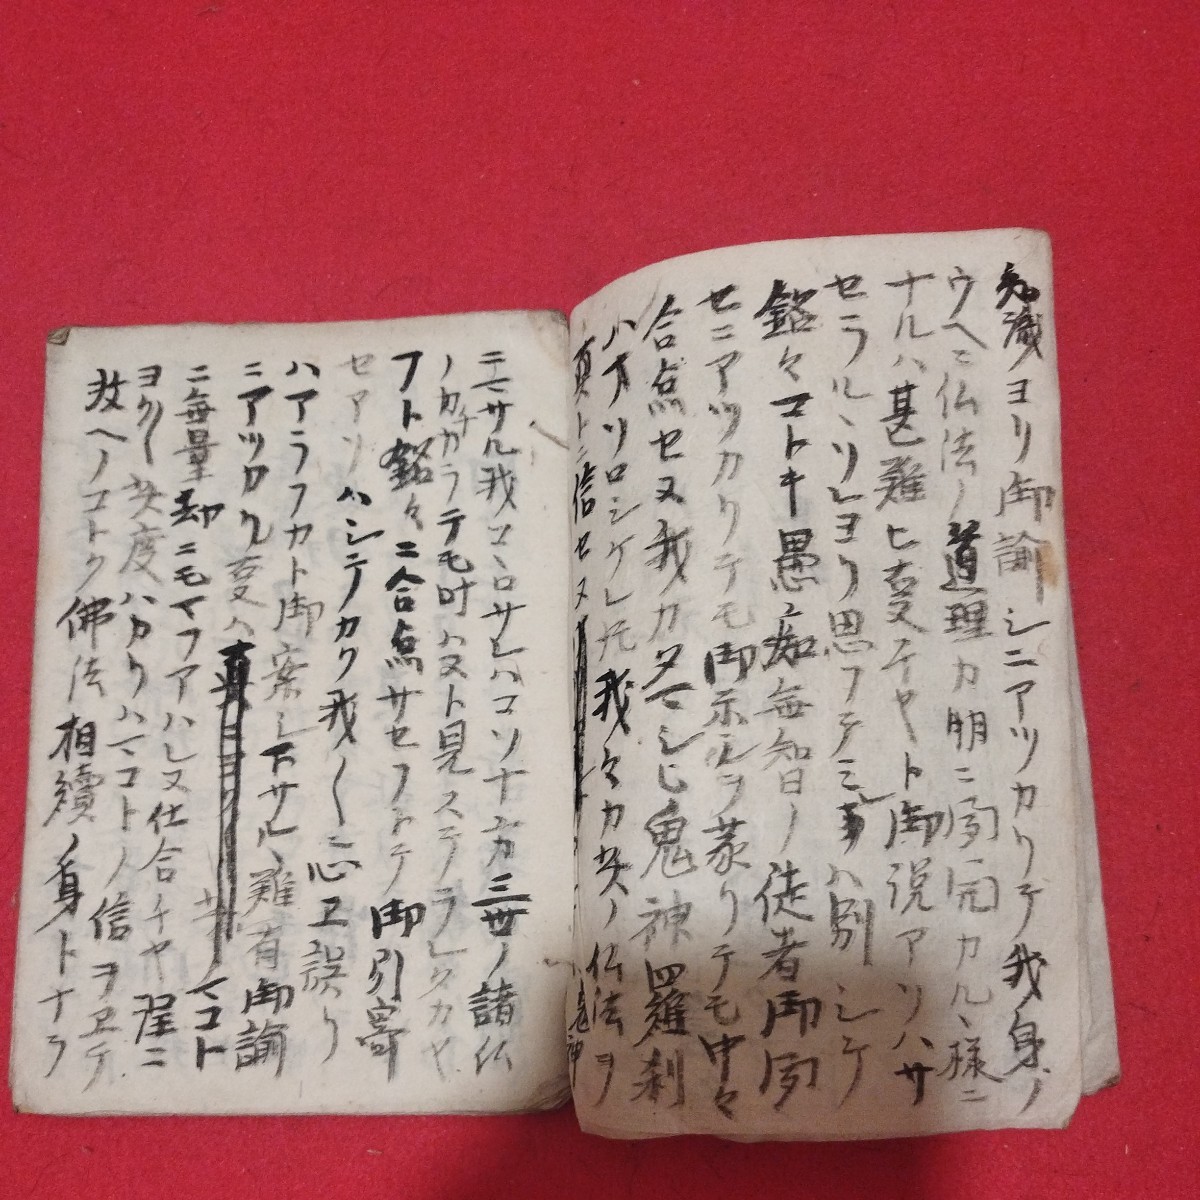 知識ヨリ御諭シニアツカリテ我身ノ
ウヘニ仏法ノ道理カ明ニ聞完カルヽ様ニ
ナルハ甚難ヒ夏チヤト御説アソハサ
セラルヽソレヨリ思フテミレハ別シテ
銘々コトキ愚痴無智ノ徒者御聞
セニアツカリテモ御示シヲ蒙リテモ中々
合点セヌ我カタマシヒ鬼神羅刹
ハオソロシケレ𪜈我々カ如ノ仏法ヲ
真トニ信セヌ 鬼神
ニマサル我コヽロサレハコソ十方三世ノ諸仏
ノカチカラテモ叶ハヌト見ステラレタカヤ
フト銘々ニ合点サセフトテ御引寄
セアソハシテカク我〱心エ誤リ
ハアラフカト御案シ下サルヽ難有御諭
ニアツカル夏ハ マコト
ニ無量劫ニモマフアハレヌ仕合チヤ程ニ
ヨク〱 此度ハカリハマコトノ信ヲヱテ
教ヘノコトク佛法相續ノ身トナラ